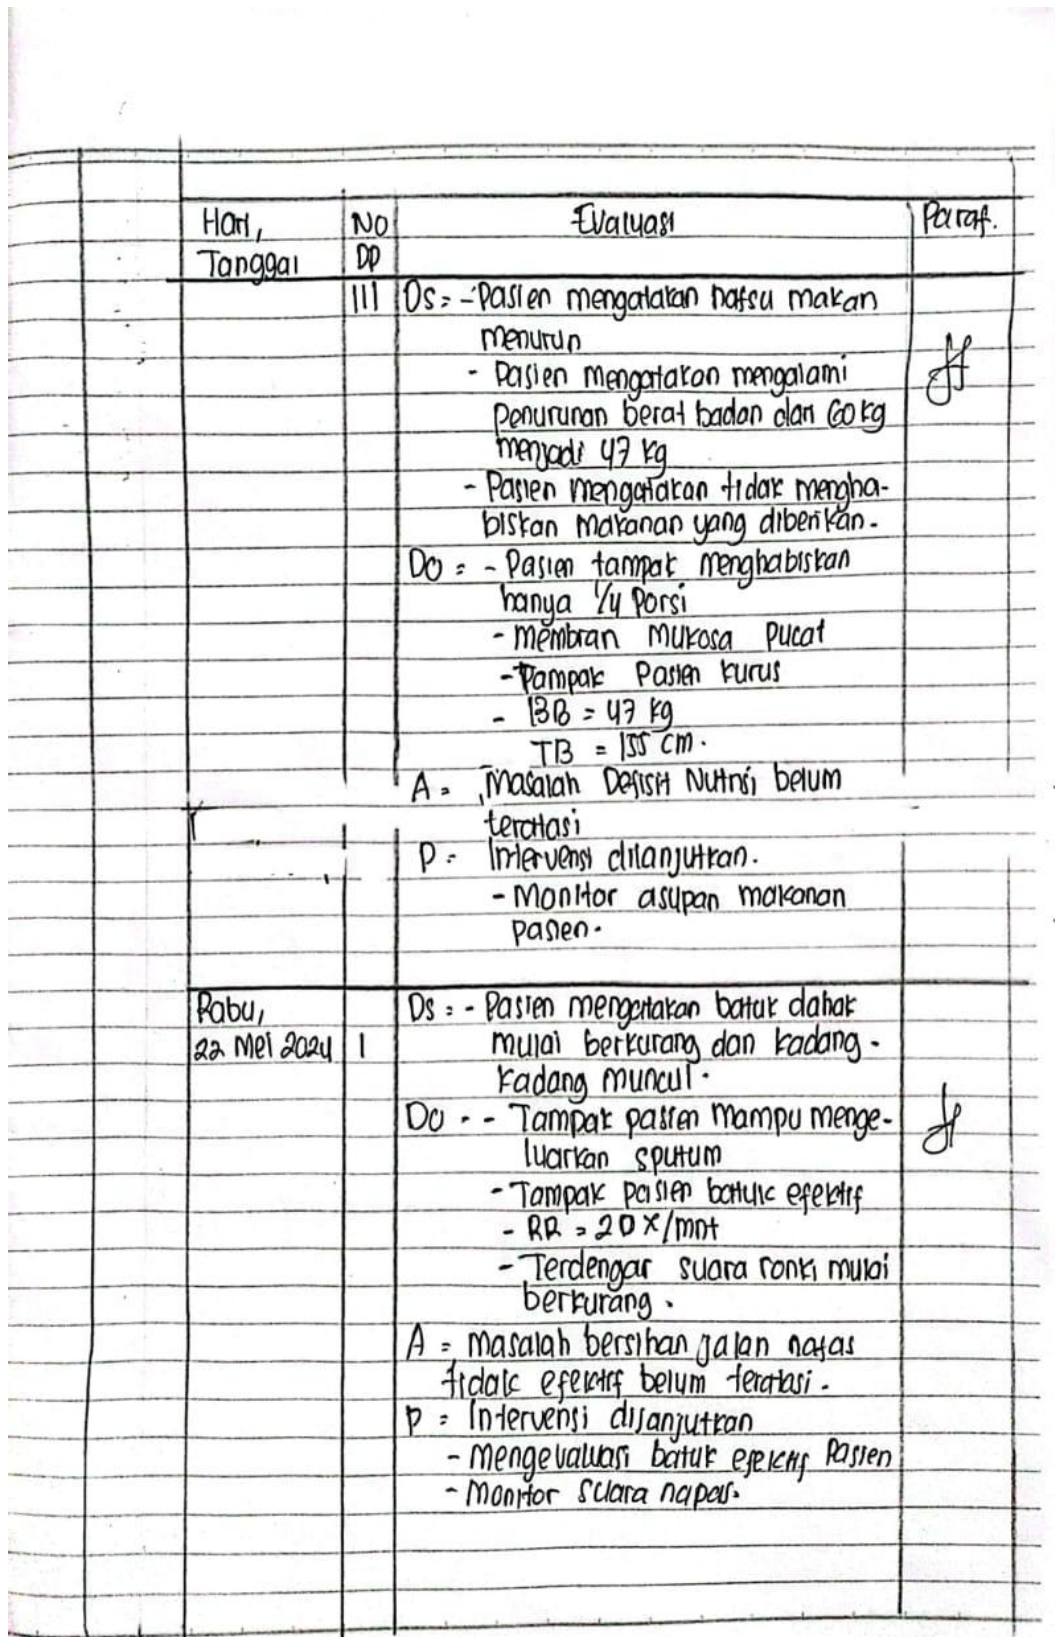 Hari, No Evaluasi Paraf.
Tanggal DP
III Ds = - Pasien mengatakan nafsu makan
menurun
- Pasien mengatakan mengalami
penurunan berat badan dari 60 kg
menjadi 47 kg
- Pasien mengatakan tidak mengha-
biskan makanan yang diberikan.
Do = - Pasien tampak menghabiskan
hanya 1/4 porsi
- membran mukosa pucat
- Tampak Pasien kurus
- BB = 47 kg
TB = 155 cm.
A = Masalah Defisit Nutrisi belum
teratasi
P = Intervensi dilanjutkan.
- Monitor asupan makanan
pasien.
Rabu, Ds = - Pasien mengatakan batuk dahak
22 Mei 2024 I mulai berkurang dan kadang-
kadang muncul.
Do - - Tampak pasien mampu menge-
luarkan sputum
- Tampak pasien batuk efektif
- RR = 20 x/mnt
- Terdengar suara ronki mulai
berkurang.
A = masalah bersihan jalan nafas
tidak efektif belum teratasi.
P = Intervensi dilanjutkan
- mengevaluasi batuk efektif Pasien
- monitor suara napas.